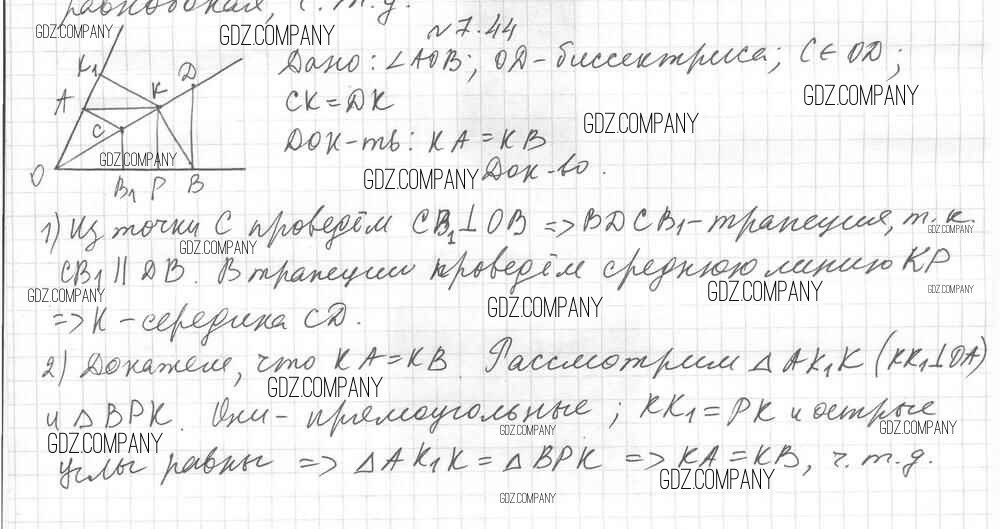 равнобокая, ч.т.д.
GDZ.COMPANY
GDZ.COMPANY
№7.44
K₁
D
K
A
C
O
B₁ P B
GDZ.COMPANY
Дано: ∠AOB; OD-биссектриса; C∈OD;
GDZ.COMPANY
CK=DK
GDZ.COMPANY
Док-ть: KA=KB
GDZ.COMPANY
Док-во.
1) Из точки C проведём CB₁⊥OB => BDCB₁-трапеция, т.к.
GDZ.COMPANY
GDZ.COMPANY
CB₁ || DB. В трапеции проведём среднюю линию KP
GDZ.COMPANY
GDZ.COMPANY
GDZ.COMPANY
GDZ.COMPANY
=> K-середина CD.
2) Докажем, что KA=KB. Рассмотрим △AK₁K (KK₁⊥OA)
GDZ.COMPANY
и △BPK. Они-прямоугольные; KK₁=PK и острые
GDZ.COMPANY
GDZ.COMPANY
GDZ.COMPANY
углы равны => △AK₁K=△BPK => KA=KB, ч.т.д.
GDZ.COMPANY
GDZ.COMPANY